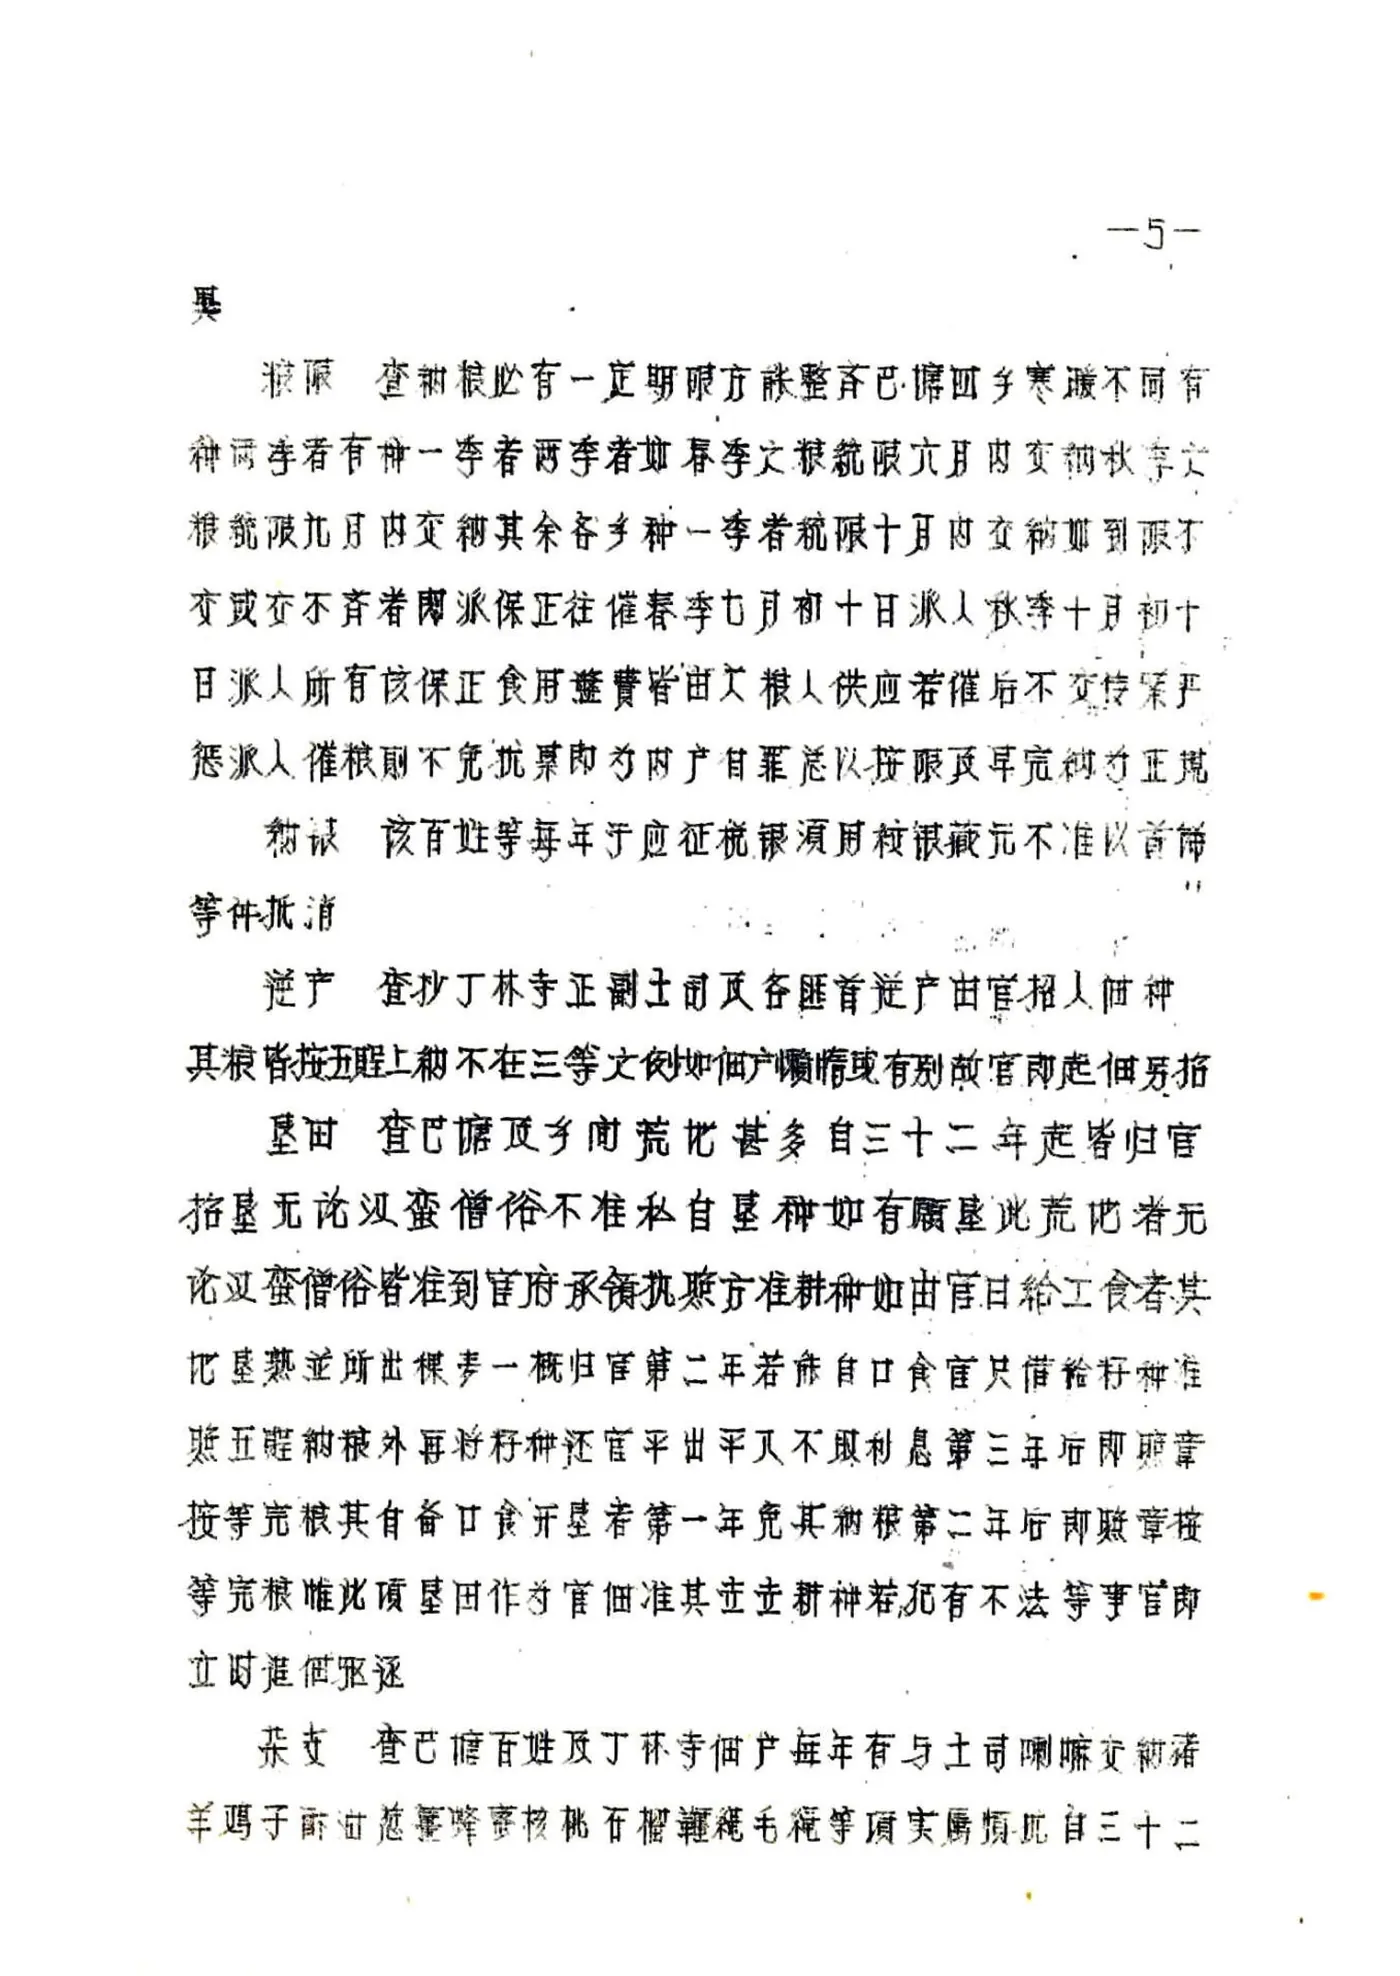 —5—
異
粮限　查纳粮必有一定期限方能整齐巴塘四乡寒暖不同有
种两季者有种一季者两季者如春季之粮统限六月内交纳秋季之
粮统限九月内交纳其余各乡种一季者统限十月内交纳如到限不
交或交不齐者即派保正往催春季七月初十日派人秋季十月初十
日派人所有该保正食用盤費皆由欠粮人供应若催后不交传案严
惩派人催粮则不免扰累即为内户甘罪总以按限及早完纳为正規
纳银　该百姓等每年于应征税银須用校银藏元不准以首飾
等件抵消
逆产　查抄丁林寺正副土司及各匪首逆产由官招人佃种
其粮皆按五踁上纳不在三等之例如佃户懶惰或有别故官即起佃另招
垦田　查巴塘及乡间荒地甚多自三十二年起皆归官
招垦无论汉蛮僧俗不准私自垦种如有願垦此荒地者无
论汉蛮僧俗皆准到官府承領执照方准耕种如由官日给工食者其
地垦熟並所出稞麦一概归官第二年若能自口食官只借给籽种准
照五踁纳粮外再将籽种还官平出平入不取利息第三年后即照章
按等完粮其自备口食开垦者第一年免其纳粮第二年后即照章按
等完粮惟此項垦田作为官佃准其立立耕种若犯有不法等事官即
立时追佃驱逐
杂支　查巴塘百姓及丁林寺佃户每年有与土司喇嘛交纳猪
羊鸡子酥油葱薑蜂蜜核桃石榴鞭绳毛绳等項实属煩扰自三十二